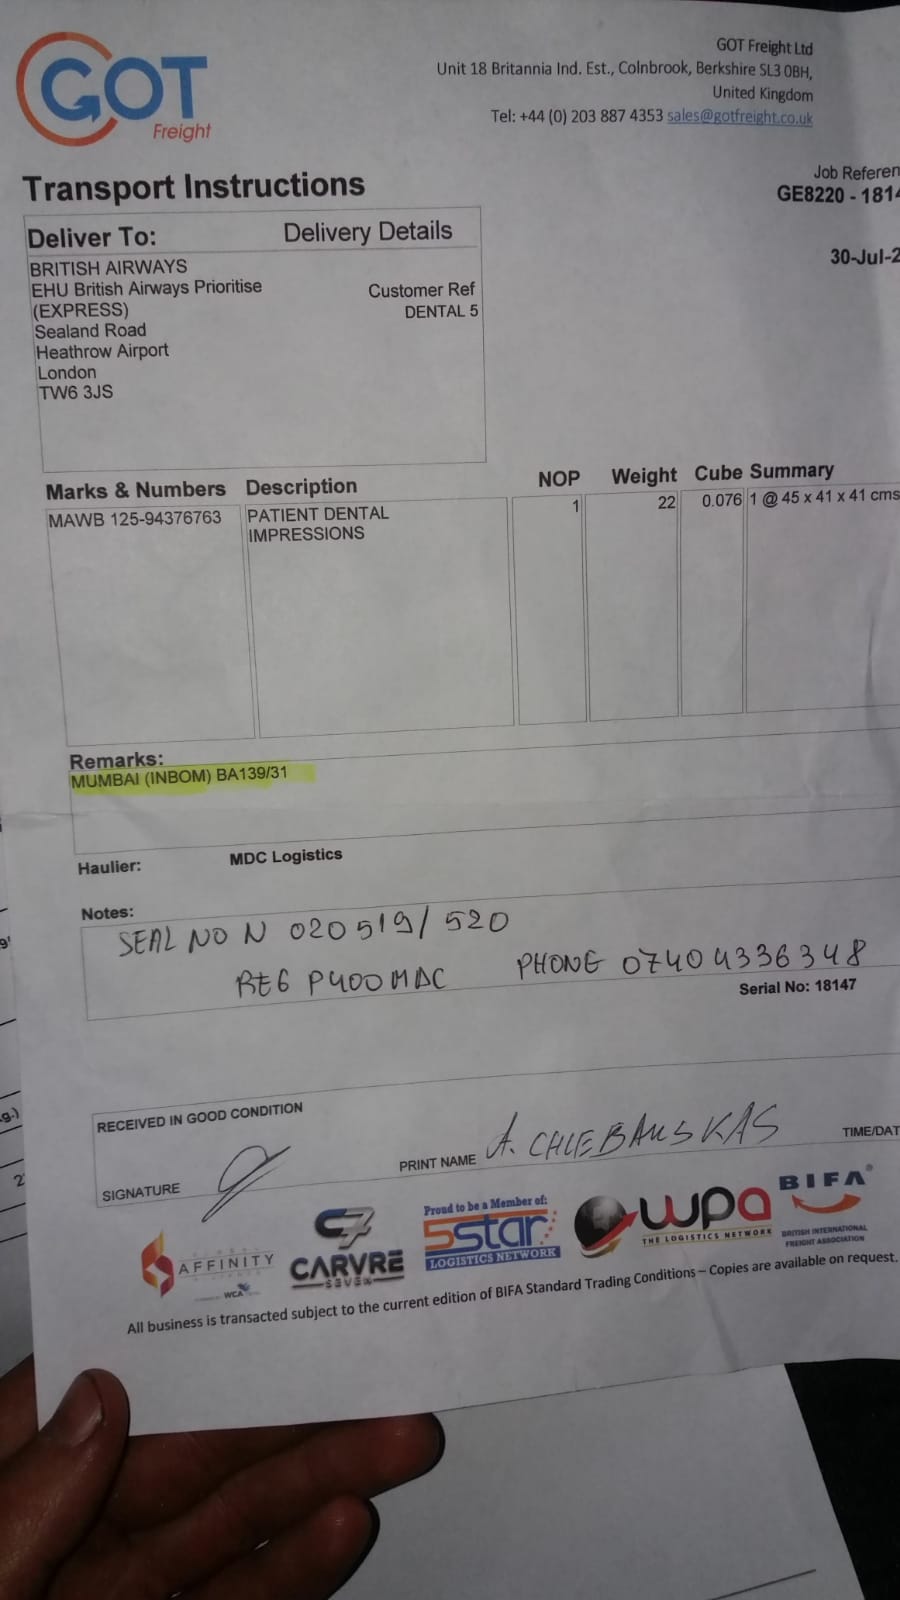 GOT
Freight
GOT Freight Ltd
Unit 18 Britannia Ind. Est., Colnbrook, Berkshire SL3 0BH,
United Kingdom
Tel: +44 (0) 203 887 4353 sales@gotfreight.co.uk
Transport Instructions
Job Referen
GE8220 - 1814
30-Jul-2
Deliver To: Delivery Details
BRITISH AIRWAYS
EHU British Airways Prioritise
(EXPRESS)
Sealand Road
Heathrow Airport
London
TW6 3JS
Customer Ref
DENTAL 5
Marks & Numbers Description NOP Weight Cube Summary
MAWB 125-94376763 PATIENT DENTAL 1 22 0.076 1 @ 45 x 41 x 41 cms
IMPRESSIONS
Remarks:
MUMBAI (INBOM) BA139/31
Haulier: MDC Logistics
Notes:
SEAL NO N 020519/520
REG P400MDC PHONE 07404336348
Serial No: 18147
RECEIVED IN GOOD CONDITION
SIGNATURE
PRINT NAME A. CHLEBAUSKAS
TIME/DAT
AFFINITY
WCA
C7
CARVRE
SEVEN
Proud to be a Member of:
5star
LOGISTICS NETWORK
wpa
THE LOGISTICS NETWORK
BIFA®
BRITISH INTERNATIONAL
FREIGHT ASSOCIATION
All business is transacted subject to the current edition of BIFA Standard Trading Conditions – Copies are available on request.
g.)